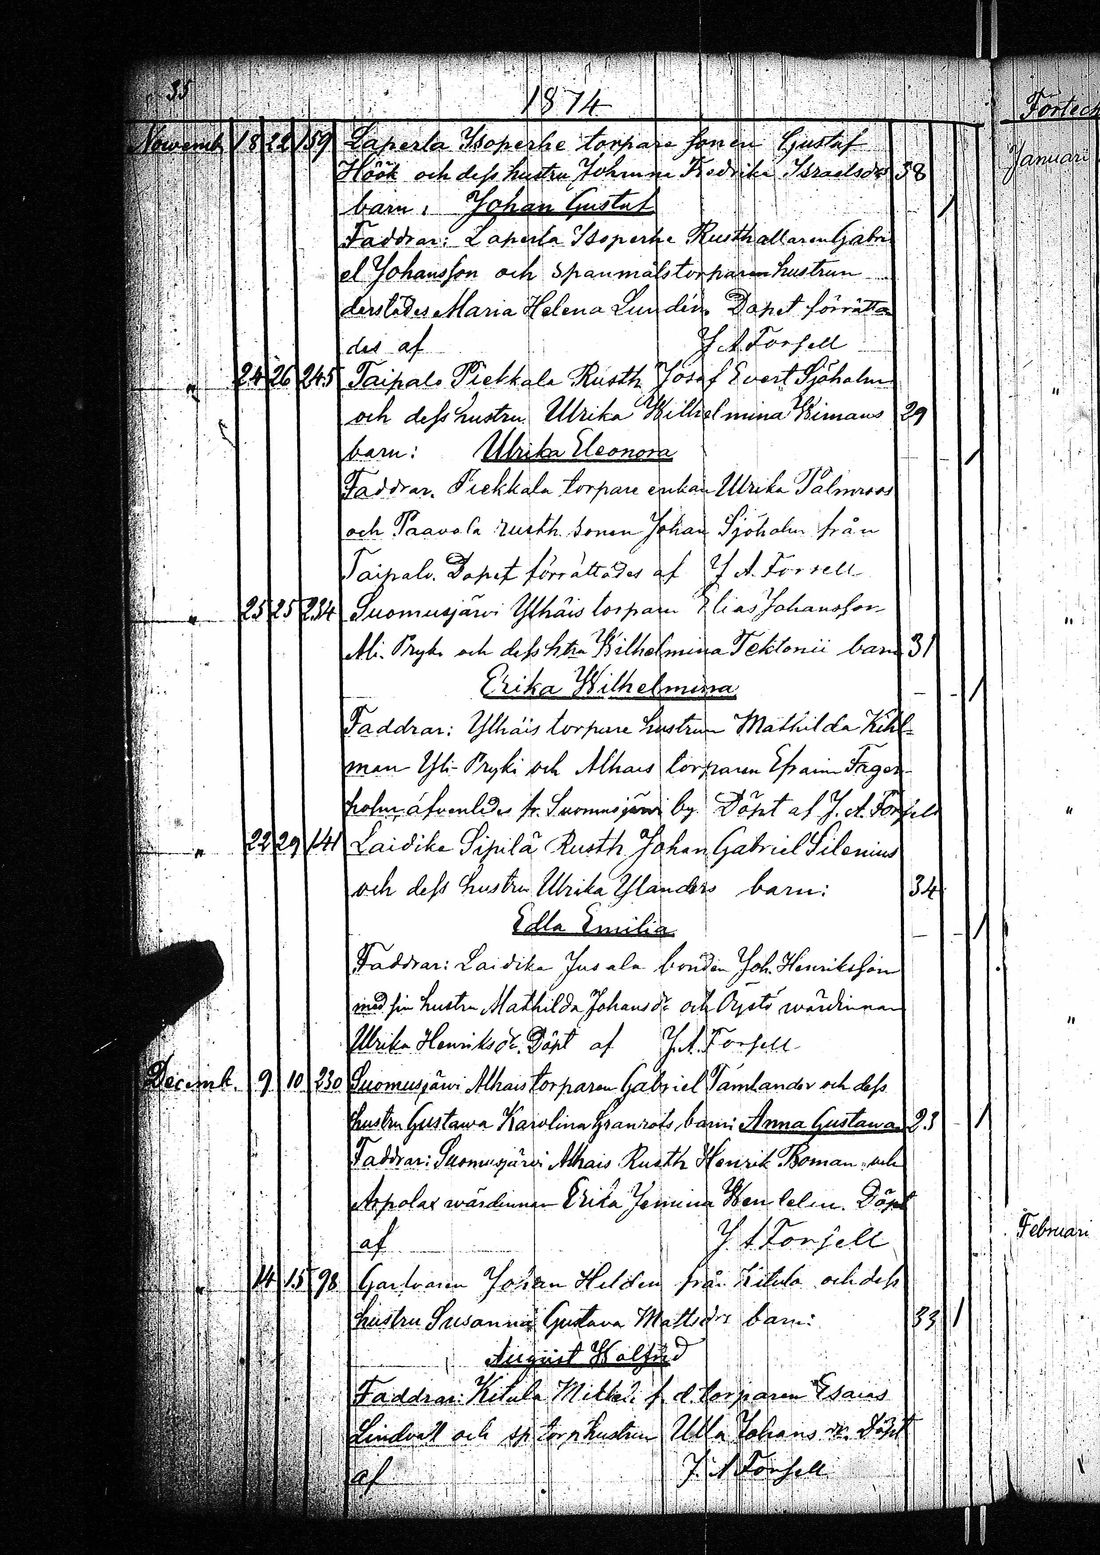 35
1874
Novemb. 18 22 159 Laperla Isoperhe torpare sonen Gustaf
Höök och dess hustru Johanna Fredrika Israelsdr 38
barn: Johan Gustaf
Faddrar: Laperla Isoperhe Rusthållaren Gabri
el Johansson och Spanmålstorparen hustrun
derstädes Maria Helena Lundén. Dopet förrätta
des af J. A. Forsell
" 24 26 245 Taipale Piekkala Rusth. Josef Evert Sjöholm
och dess hustru Ulrika Wilhelmina Wimans 29
barn: Ulrika Eleonora
Faddrar. Piekkala torpare enkan Ulrika Palmroos
och Paavola rusth. sonen Johan Sjöholm från
Taipale. Dopet förrättades af J. A. Forsell
" 25 25 234 Suomusjärvi Ylhäis torparen Elias Johansson
Ali-Pryki och dess htru Wilhelmina Tektonii barn 31
Erika Wilhelmina
Faddrar: Ylhäis torpare hustrun Mathilda Kihl-
man Yli-Pryki och Alhais torparen Efraim Fager-
holm äfvenledes fr. Suomusjärvi by. Döpt af J. A. Forsell
" 22 29 141 Laidike Sipilä Rusth. Johan Gabriel Silenius
och dess hustru Ulrika Ylanders barn: 34
Edla Emilia
Faddrar: Laidike Jusala bonden Joh. Henriksson
med sin hustru Mathilda Johansdr och wärdinnan
Ulrika Henriksdr. Döpt af J. A. Forsell
Decemb. 9 10 230 Suomusjärvi Alhais torparen Gabriel Tamlander och dess
hustru Gustawa Karolina Granrots barn: Anna Gustawa 23
Faddrar: Suomusjärvi Alhais Rusth. Henrik Boman och
Arpolax wärdinnan Erika Jemina Wenlelin. Döpt
af J. A. Forsell
" 14 15 98 Garfvaren Johan Helden från Kitula och dess
hustru Susanna Gustava Mattsdrs barn: 33
August Walfrid
Faddrar: Kitula f. d. torparen Esaias
Lindvall och sp. torp. hustrun Ulla Johansdr. Döpt
af J. A. Forsell
Januari
"
"
"
"
Februari